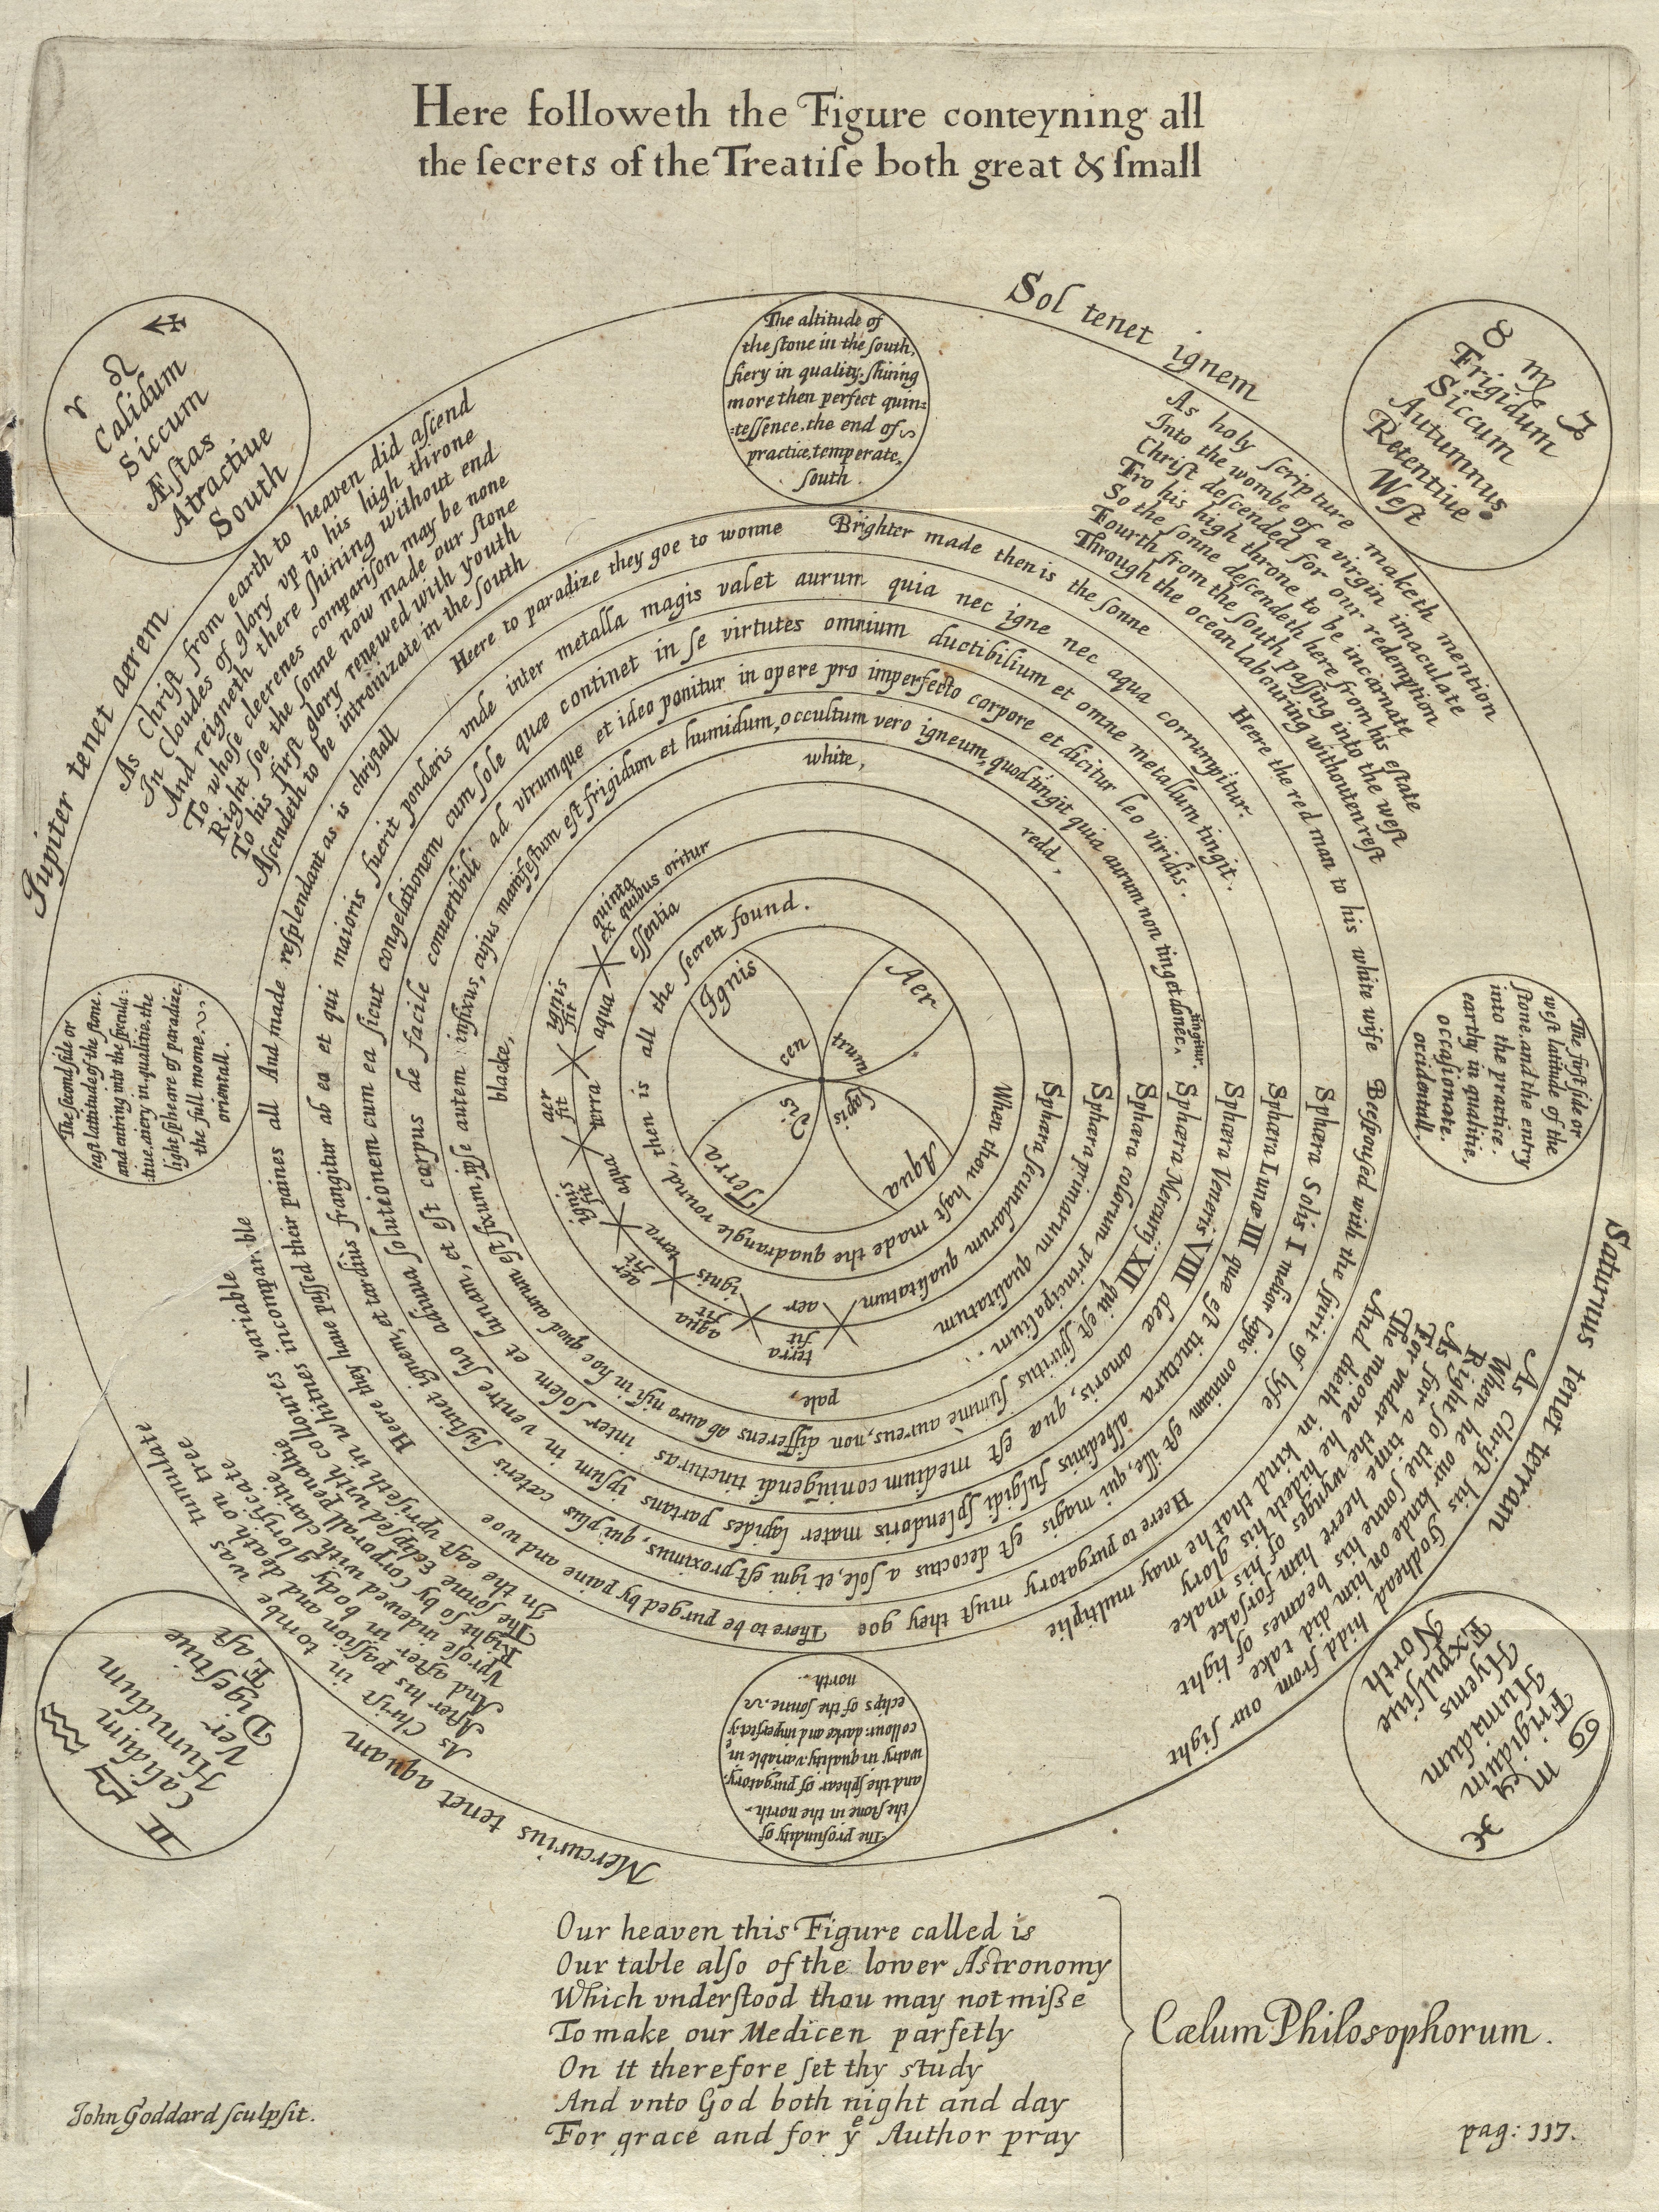 Here followeth the Figure conteyning all
the ſecrets of the Treatiſe both great & ſmall
♈ ♌ ♐
Calidum
Siccum
Æſtas
Atractiue
South
The altitude of
the ſtone in the ſouth,
fiery in quality, ſhining
more then perfect quin=
=teſſence. the end of
practice, temperate,
ſouth.
Sol tenet ignem
♉ ♍ ♑
Frigidum
Siccum
Autumnus
Retentiue
Weſt
Jupiter tenet aerem.
As Chriſt from earth to heaven did aſcend
In Cloudes of glory vp to his high throne
And reigneth there ſhining without end
To whoſe cleerenes compariſon may be none
Right ſoe the ſonne now made our ſtone
To his firſt glory renewed with youth
Aſcendeth to be intronizate in the ſouth
As holy ſcripture maketh mention
Into the wombe of a virgin imaculate
Chriſt deſcended for our redemption
Fro his high throne to be incarnate
So the ſonne deſcendeth here from his eſtate
Fourth from the ſouth paſſing into the weſt
Through the ocean labouring withouten reſt
The ſecond ſide or
eaſt lattitude of the ſtone.
and entring into the ſpecula:
:tiue. aiery in qualitie. the
light ſpheare of paradize.
the full moone.
orientall.
The firſt ſide or
weſt latitude of the
ſtone. and the entry
into the practice.
earthy in qualitie.
occaſionate.
occidentall.
Here the red man to his white wife
Beeſpouſed with the ſpirit of lyfe
Heere to purgatory muſt they goe
There to be purged by paine and woe
Heere they have paſſed their paines all
And made reſplendant as is chriſtall
Here to paradize they goe to wonne
Brighter made then is the ſonne
Sphæra Solis I melior lapis omnium eſt ille, qui magis eſt decoctus a ſole, et igni eſt proximus, qui plus cæteris ſuſtinet ignem, et tardius frangitur ab ea et qui maioris fuerit ponderis vnde inter metalla magis valet aurum quia nec igne nec aqua corrumpitur.
Sphæra Lunæ III quæ eſt tinctura albedinis fulgidi ſplendoris mater lapides partans ipſum in ventre ſuo adiuua ſolutionem cum ea ſicut congelationem cum ſole quæ continet in ſe virtutes omnium ductibilium et omne metallum tingit.
Sphæra Veneris VIII dea amoris, quæ eſt medium coniūgendi tincturas inter ſolem et lunam, et eſt corpus de facile conuertibili ad vtrumque et ideo ponitur in opere pro imperfecto corpore et dicitur leo viridis.
Sphæra Mercurij XII qui eſt ſpiritus ſummè aureus, non differens ab auro niſi in hoc quod aurum eſt fixum, ipſe autem infixus, cujus manifeſtum eſt frigidum et humidum, occultum vero igneum, quod tingit quia aurum non tinget donec tingitur.
Sphæra colorum principalium.
pale,
blacke,
white,
redd,
Sphæra primarum qualitatum
Sphæra ſecundarum qualitatum
terra fit aer
aqua fit ignis
aer fit terra
ignis fit aqua
aer fit terra
ignis fit aqua
ex quibus oritur
quinta eſſentia
When thou haſt made the quadrangle round, then is all the ſecrett found.
Ignis
Aer
Aqua
Terra
cen
trum
lapis
dis
Saturnus tenet terram
As Chriſt his Godhead hidd from our ſight
When he our kinde on him did take
Right ſo the ſonne his beames of light
As for a time heere him forſake
For vnder the wynges of his make
The moone he hideth his glory
And dieth in kind that he may multiplie
As Chriſt in tombe was tumulate
After his paſſion and death on tree
And after in body glorificate
Vproſe indewed with claritie
Right ſo by corporall penalie
The ſonne Eclipſed with collours variable
In the eaſt vpriſeth in whitnes incomparable
Mercurius tenet aquam
♊ ♎ ♒
Calidum
Humidum
Ver
Digeſtiue
Eaſt
The profundity of
the ſtone in the north.
and the ſphear of purgatory.
watry in quality. variable in
collour: darke and imperfect. yᵉ
eclips of the ſonne.
north.
♋ ♏ ♓
Frigidum
Humidum
Hyems
Expulſiue
North
Our heaven this Figure called is
Our table alſo of the lower Aſtronomy
Which vnderſtood thou may not miſse
To make our Medicen parfetly
On it therefore ſet thy study
And vnto God both night and day
For grace and for yᵉ Author pray
Cælum Philosophorum.
John Goddard ſculpſit.
pag: 117.